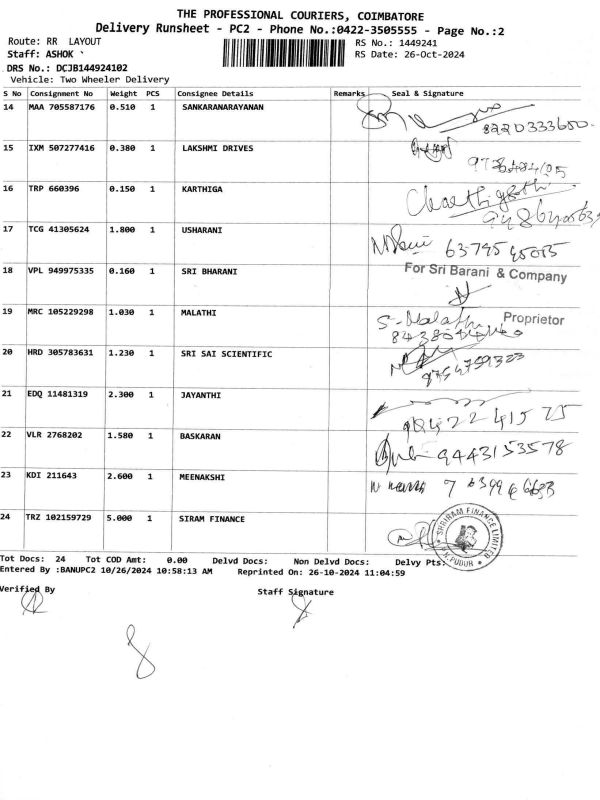 THE PROFESSIONAL COURIERS, COIMBATORE
Delivery Runsheet - PC2 - Phone No.:0422-3505555 - Page No.:2
Route: RR LAYOUT
RS No.: 1449241
Staff: ASHOK `
RS Date: 26-Oct-2024
DRS No.: DCJB144924102
Vehicle: Two Wheeler Delivery
S No Consignment No Weight PCS Consignee Details Remarks Seal & Signature
14 MAA 705587176 0.510 1 SANKARANARAYANAN
8220333600
15 IXM 507277416 0.380 1 LAKSHMI DRIVES
16 TRP 660396 0.150 1 KARTHIGA
17 TCG 41305624 1.800 1 USHARANI
18 VPL 949975335 0.160 1 SRI BHARANI For Sri Barani & Company
19 MRC 105229298 1.030 1 MALATHI S. Malathi Proprietor
20 HRD 305783631 1.230 1 SRI SAI SCIENTIFIC
9754759323
21 EDQ 11481319 2.300 1 JAYANTHI
22 VLR 2768202 1.580 1 BASKARAN 9443153578
23 KDI 211643 2.600 1 MEENAKSHI
24 TRZ 102159729 5.000 1 SIRAM FINANCE SHRIRAM FINANCE LIMITED P.N.PUDUR
Tot Docs: 24 Tot COD Amt: 0.00 Delvd Docs: Non Delvd Docs: Delvy Pts:
Entered By :BANUPC2 10/26/2024 10:58:13 AM Reprinted On: 26-10-2024 11:04:59
Verified By Staff Signature